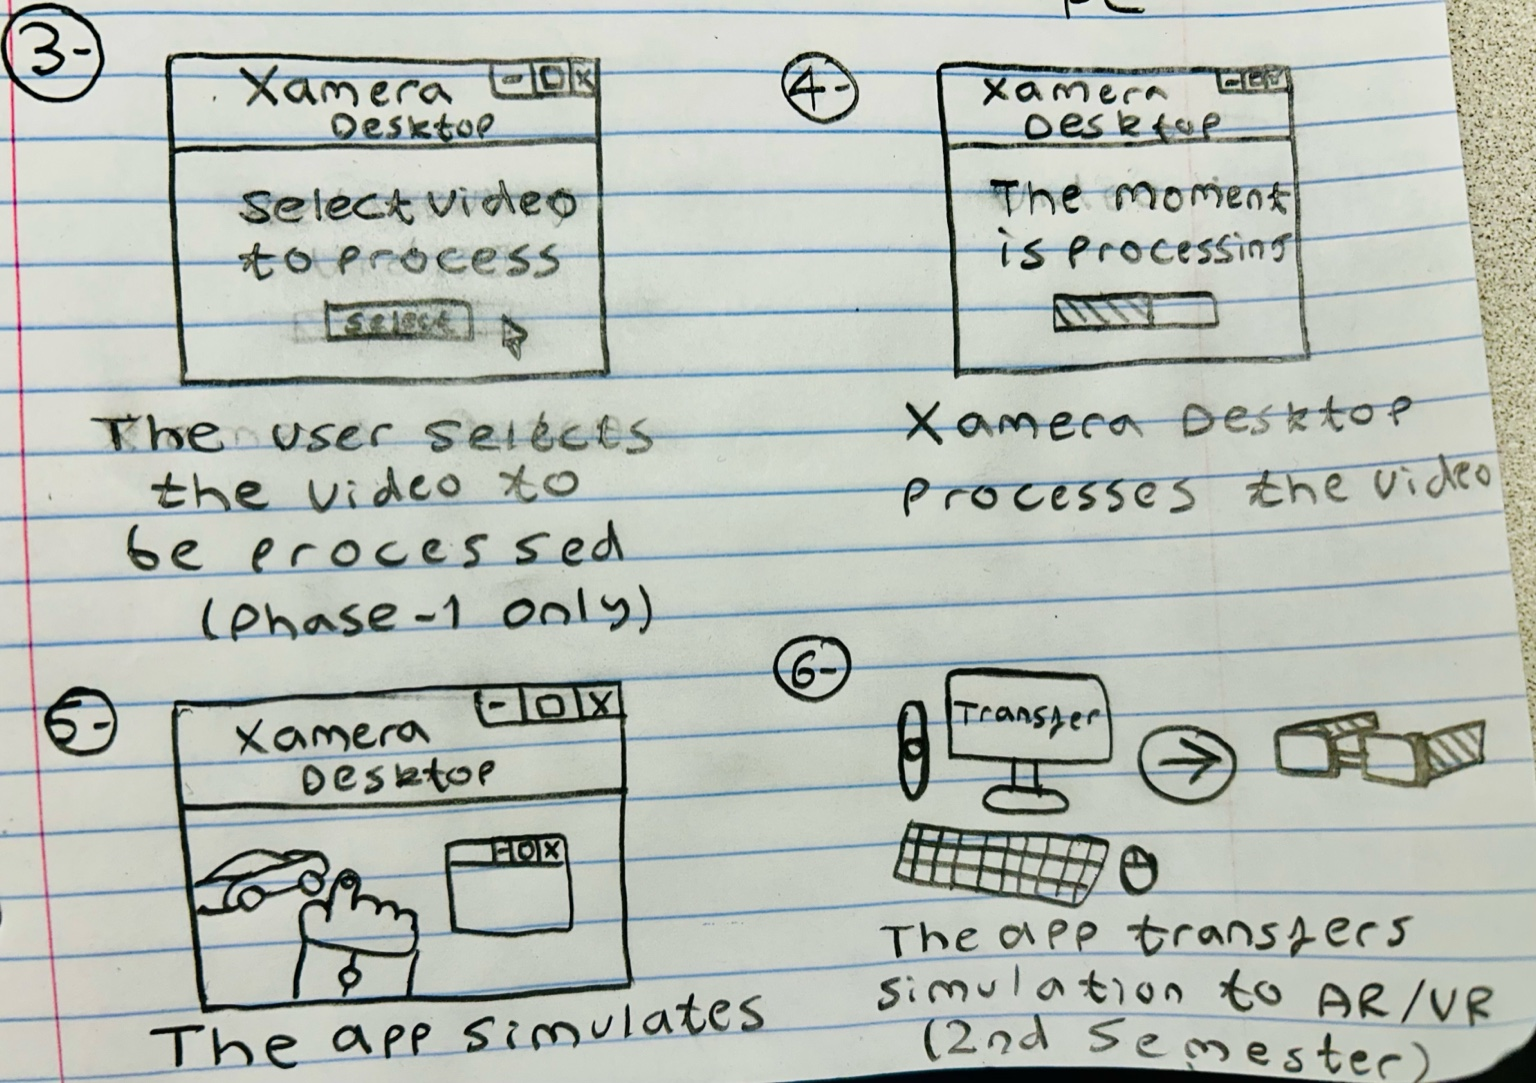 PC
3-
Xamera
Desktop
- □ X
Select video
to process
Select
The user selects
the video to
be processed
(Phase-1 only)
4-
Xamera
Desktop
The moment
is processing
Xamera Desktop
Processes the video
5-
Xamera
Desktop
- □ X
- □ X
The app simulates
6-
Transfer
The app transfers
simulation to AR/VR
(2nd Semester)